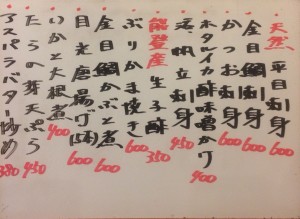 天然 平目刺身 600
金目鯛刺身 600
かつお刺身 600
ホタルイカ酢味噌がけ 400
活帆立刺身 450
能登産 生子酢 350
ぶりかま焼き 600
金目鯛かぶと煮 600
目光唐揚げ 600
いかと大根煮 400
たらの芽天ぷら 450
アスパラバター炒め 380